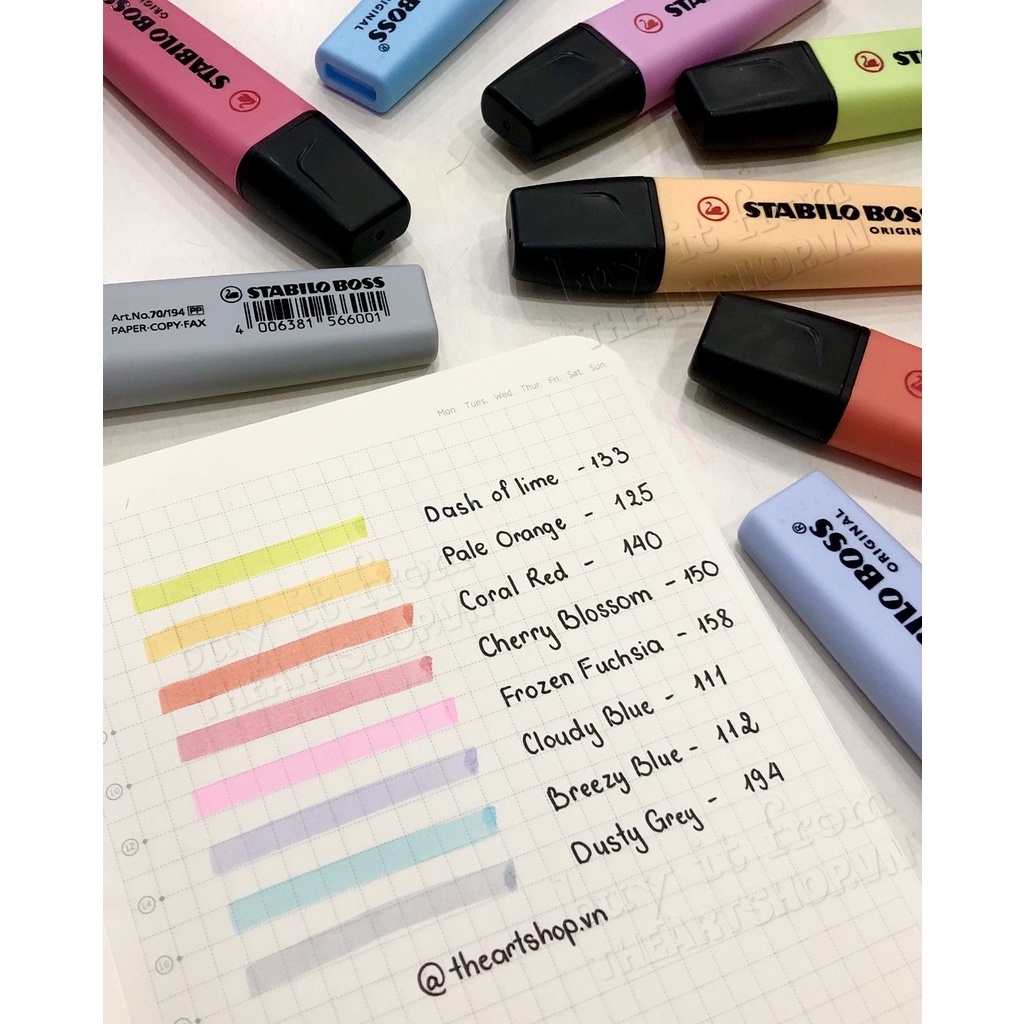 STABILO BOSS
ORIGINAL
BOSS®
ORIGINAL
STABILO BOSS
ORIGIN
Art.No.70/194 PP
PAPER·COPY·FAX
STABILO BOSS
4 006381 566001
STABILO BOSS
ORIGINAL
Mon. Tues. Wed. Thur. Fri. Sat. Sun.
Dash of lime - 133
Pale Orange - 125
Coral Red - 140
Cherry Blossom - 150
Frozen Fuchsia - 158
Cloudy Blue - 111
Breezy Blue - 112
Dusty Grey - 194
10
12
14
16
@theartshop.vn
buy it from
THEARTSHOP.VN
buy it from
THEARTSHOP.VN
buy it from
THEARTSHOP.VN